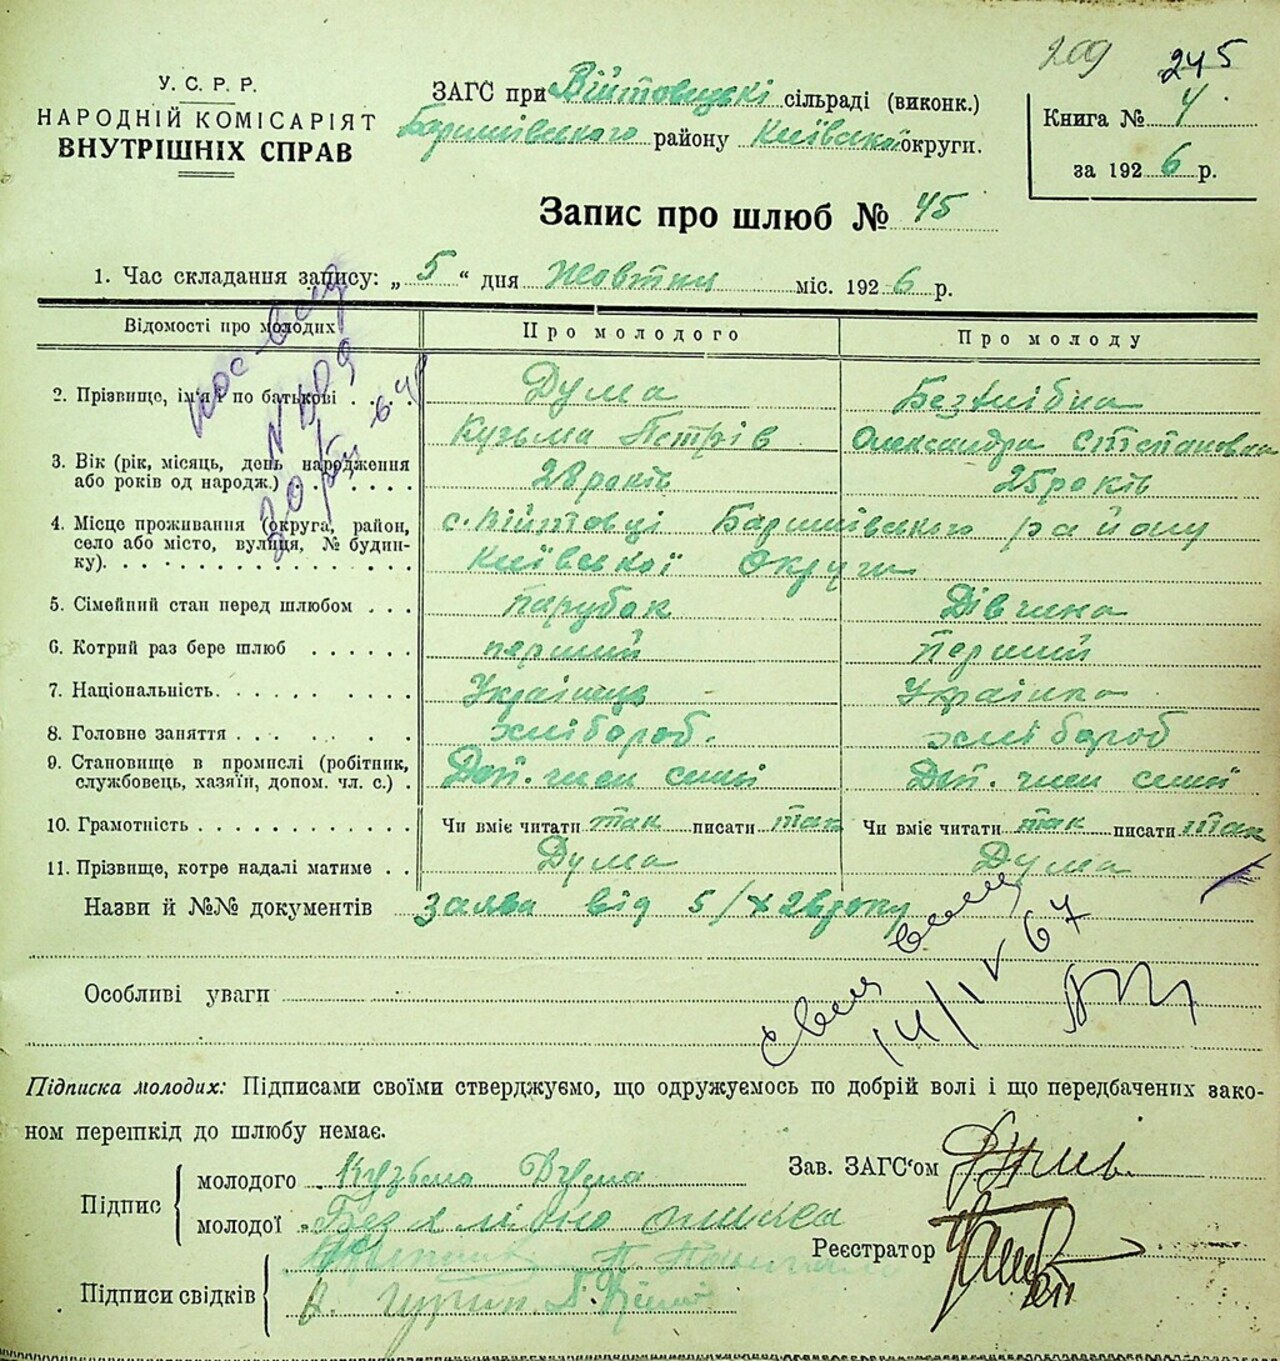 209 245
У. С. Р. Р.
НАРОДНІЙ КОМІСАРІЯТ
ВНУТРІШНІХ СПРАВ
ЗАГС при Війтовецькі сільраді (виконк.)
Баришівського району Київської округи.
Книга № 4
за 1926 р.
Запис про шлюб № 45
1. Час складання запису: „5“ дня Жовтня міс. 1926 р.
Відомості про молодих Про молодого Про молоду
2. Прізвище, ім'я і по батькові . . . . Дума Безхлібна
Кузьма Петрів Олександра Степановна
3. Вік (рік, місяць, день народження
або років од народж.) . . . . . . 28 років 25 років
4. Місце проживання (округа, район,
село або місто, вулиця, № будин-
ку). . . . . . . . . . . . . . . .
с. Війтовці Баришівського району
Київської Округи
5. Сімейний стан перед шлюбом . . . парубок Дівчина
6. Котрий раз бере шлюб . . . . . . перший Перший
7. Національність. . . . . . . . . . Українець Українка
8. Головне заняття . . . . . . . хлібороб. хлібороб
9. Становище в промислі (робітник,
службовець, хазяїн, допом. чл. с.) . Доп. член семії Доп. член семії
10. Грамотність . . . . . . . . . . . . Чи вміє читати так писати так Чи вміє читати так писати так
11. Прізвище, котре надалі матиме . . Дума Дума
Назви й №№ документів заява від 5/X 26 року
Особливі уваги
14/IV 67
Підписка молодих: Підписами своїми стверджуємо, що одружуємось по добрій волі і що передбачених зако-
ном перешкід до шлюбу немає.
Підпис
молодого Кузьма Дума
молодої Безхлібна
Зав. ЗАГС'ом
Реєстратор
Підписи свідків